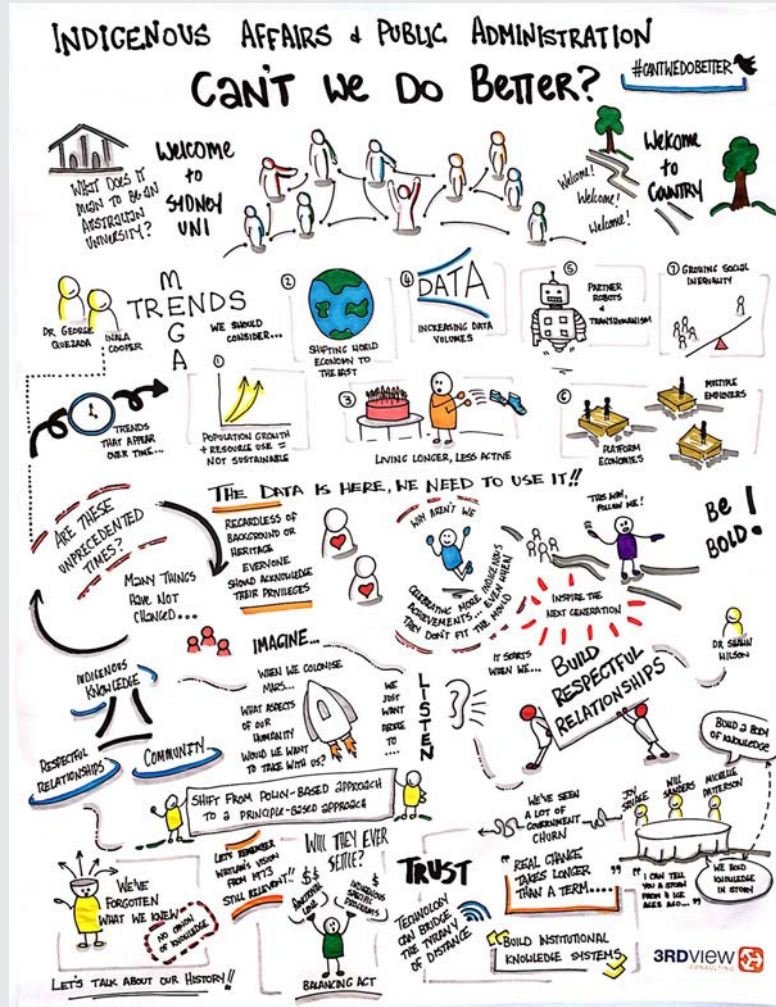 INDIGENOUS AFFAIRS & PUBLIC ADMINISTRATION
CAN'T WE DO BETTER?
#CANTWEDOBETTER
WHAT DOES IT
MEAN TO BE AN
AUSTRALIAN
UNIVERSITY?
Welcome
to
SYDNEY
UNI
Welcome!
Welcome!
Welcome!
Welcome
to
COUNTRY
DR GEORGE
QUEZADA
INALA
COOPER
MEGA
TRENDS
WE SHOULD
CONSIDER...
①
POPULATION GROWTH
+ RESOURCE USE =
NOT SUSTAINABLE
②
SHIFTING WORLD
ECONOMY TO
THE EAST
③
LIVING LONGER, LESS ACTIVE
④
DATA
INCREASING DATA
VOLUMES
⑤
PARTNER
ROBOTS
&
TRANSHUMANISM
⑥
PLATFORM
ECONOMIES
MULTIPLE
EMPLOYERS
⑦ GROWING SOCIAL
INEQUALITY
TRENDS
THAT APPEAR
OVER TIME...
THE DATA IS HERE, WE NEED TO USE IT!!
ARE THESE
UNPRECEDENTED
TIMES?
MANY THINGS
HAVE NOT
CHANGED...
REGARDLESS OF
BACKGROUND OR
HERITAGE
EVERYONE
SHOULD ACKNOWLEDGE
THEIR PRIVILEGES
WHY AREN'T WE
CELEBRATING MORE INDIGENOUS
ACHIEVEMENTS... EVEN WHEN
THEY DON'T FIT THE MOULD
THIS WAY,
FOLLOW ME!
BE
BOLD!
INSPIRE THE
NEXT GENERATION
DR SHAUN
WILSON
INDIGENOUS
KNOWLEDGE
RESPECTFUL
RELATIONSHIPS
COMMUNITY
IMAGINE...
WHEN WE COLONISE
MARS...
WHAT ASPECTS
OF OUR
HUMANITY
WOULD WE WANT
TO TAKE WITH US?
WE
JUST
WANT
PEOPLE
TO
....
LISTEN
IT STARTS
WHEN WE...
BUILD
RESPECTFUL
RELATIONSHIPS
SHIFT FROM POLICY-BASED APPROACH
TO A PRINCIPLE-BASED APPROACH
BUILD A BODY
OF KNOWLEDGE
JOY
SAVAGE
WILL
SANDERS
MICHELLE
PATTERSON
WE'VE SEEN
A LOT OF
GOVERNMENT
CHURN
WE HOLD
KNOWLEDGE
IN STORY
" I CAN TELL
YOU A STORY
FROM 2 ICE
AGES AGO... "
WE'VE
FORGOTTEN
WHAT WE KNEW
LET'S TALK ABOUT OUR HISTORY!!
LET'S REMEMBER
WHITLAM'S VISION
FROM 1973
STILL RELEVANT!!
WILL THEY EVER
SETTLE?
$$
$
INDIGENOUS
SPECIFIC
PROGRAMS
BALANCING ACT
TRUST
TECHNOLOGY
CAN BRIDGE
THE TYRANNY
OF DISTANCE
" REAL CHANGE
TAKES LONGER
THAN A TERM.... "
BUILD INSTITUTIONAL
KNOWLEDGE SYSTEMS
3RDVIEW
CONSULTING